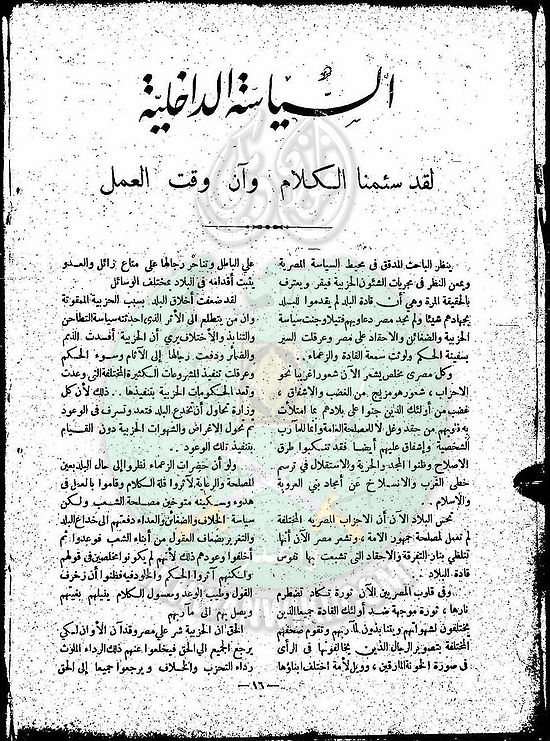 السياسة الداخلية
لقد سئمنا الكلام وآن وقت العمل
ينظر الباحث المدقق فى محيط السياسة المصرية
ويمعن النظر فى مجريات الشئون الحزبية فيقر ويعترف
بالحقيقة المرة وهى أن قادة البلد لم يقدموا للبلد
بجهادهم شيئا ولم تجد مصر دعاويهم فتيلا وجنت سياسة
الحزبية والضغائن والاحقاد على مصر وعرقلت السير
بسفينة الحكم ولوثت سمعة القادة والزعماء .
وكل مصرى مخلص يشعر الآن شعورا غريبا نحو
الاحزاب ، شعور هو مزيج من الغضب والاشفاق ،
غضب من أولئك الذين جنوا على بلادهم بما امتلأت
به قلوبهم من حقد وغل لا للمصلحة العامة وانما للمآرب
الشخصية وإشفاق عليهم أيضا فقد تنكبوا طرق
الاصلاح وظنوا المجد والحرية والاستقلال فى ترسم
خطى الغرب والانسلاخ عن أمجاد بنى العروبة
والاسلام
تحس البلاد الآن أن الاحزاب المصريه المختلفة
لم تعمل لمصلحة جمهور الامة ، وتشعر مصر الآن أنها
تتلظي بنار التفرقة والاحقاد التى تشبعت بها نفوس
قادة البلاد .
وفى قلوب المصريين الآن ثورة تكاد تضطرم
نارها ، ثورة موجهة ضد أولئك القادة جميعا الذين
يختلفون لشهواتهم ويتنابذون لمآربهم وتقوم صحفهم
المختلفة بتصوير الرجال الذين يخالفونها فى الرأى
فى صورة الخونة المارقين ، وويل لأمة اختلف ابناؤها
علي الباطل وتناحر رجالها على متاع زائل والعدو
يثبت أقدامه فى البلاد بمختلف الوسائل
لقد ضعفت أخلاق البلاد بسبب الحزبية الممقوتة
وان من يتطلع الى الأثر الذى احدثته سياسة التطاحن
والتنابذ والأختلاف يرى أن الحزبية أفسدت الذمم
والضمائر ودفعت رجالها إلى الآثام وسوء الحكم
وعرقلت تنفيذ المشروعات الكثيرة المختلفة التى وعدت
وتعد الحكومات الحزبية بتنفيذها .. ذلك لأن كل
وزارة تحاول أن تخدع البلد فتعد وتسرف فى الوعود
ثم تحول الاغراض والشهوات الحزبية دون القيام
بتنفيذ تلك الوعود ..
ولو أن حضرات الزعماء نظروا إلى حال البلد بعين
المصلحة والرعاية لآثروا قلة الكلام وقاموا بالعمل فى
هدوء وسكينه متوخين مصلحة الشعب ولكن
سياسة الخلاف والضغائن والعداء دفعتهم الى خداع البلد
والتغرير بضعاف العقول من أبناء الشعب فوعدوا ثم
أخلفوا وعودهم ذلك لأنهم لم يكونوا مخلصين فى قولهم
ولكنهم آثروا الحكم والخلود فيه فظنوا أن زخرف
القول وطيب الوعد ومعسول الكلام ينيلهم بغيتهم
ويصل بهم الى مآربهم
الحق ان الحزبية شر علي مصر وقد آن الأوان لكى
يرجع الجميع الى الحق فيخلعوا عنهم ذلك الرداء الملوث
رداء التحزب والخلاف و يرجعوا جميعا إلى الحق
— ١٦ —